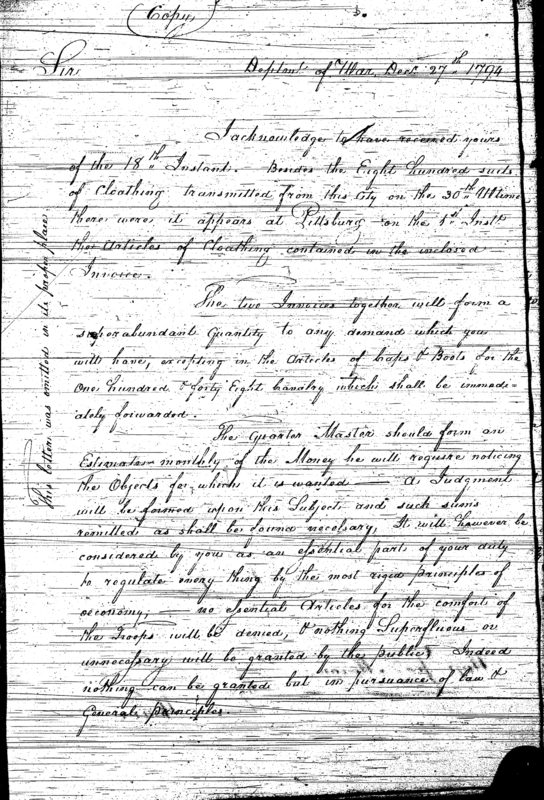 (Copy)
Sir,
Deptmt. of War, Decr. 27th. 1794
I acknowledge to have received yours
of the 18th. Instant. Besides the Eight hundred suits
of Cloathing transmitted from this City on the 30th. Ultimo
there were it appears at Pittsburg on the 1st. Instt.
the Articles of Cloathing contained in the inclosed
Invoice.
The two Invoices together will form a
superabundant Quantity to any demand which you
will have, excepting in the Articles of Caps & Boots for the
One hundred & forty Eight Cavalry which shall be immedi-
ately forwarded.
The Quarter Master should form an
Estimate monthly of the Money he will require noticing
the Objects for which it is wanted — A Judgment
will be formed upon this Subject and such sums
remitted as shall be found necessary, It will however be
considered by you as an essential part of your duty
to regulate every thing by the most rigid principles of
oeconomy; — no essential Articles for the comfort of
the Troops will be denied, & nothing Superfluous or
unnecessary will be granted by the public, Indeed
nothing can be granted but in pursuance of law &
General principles.
This letter was omitted in its proper place